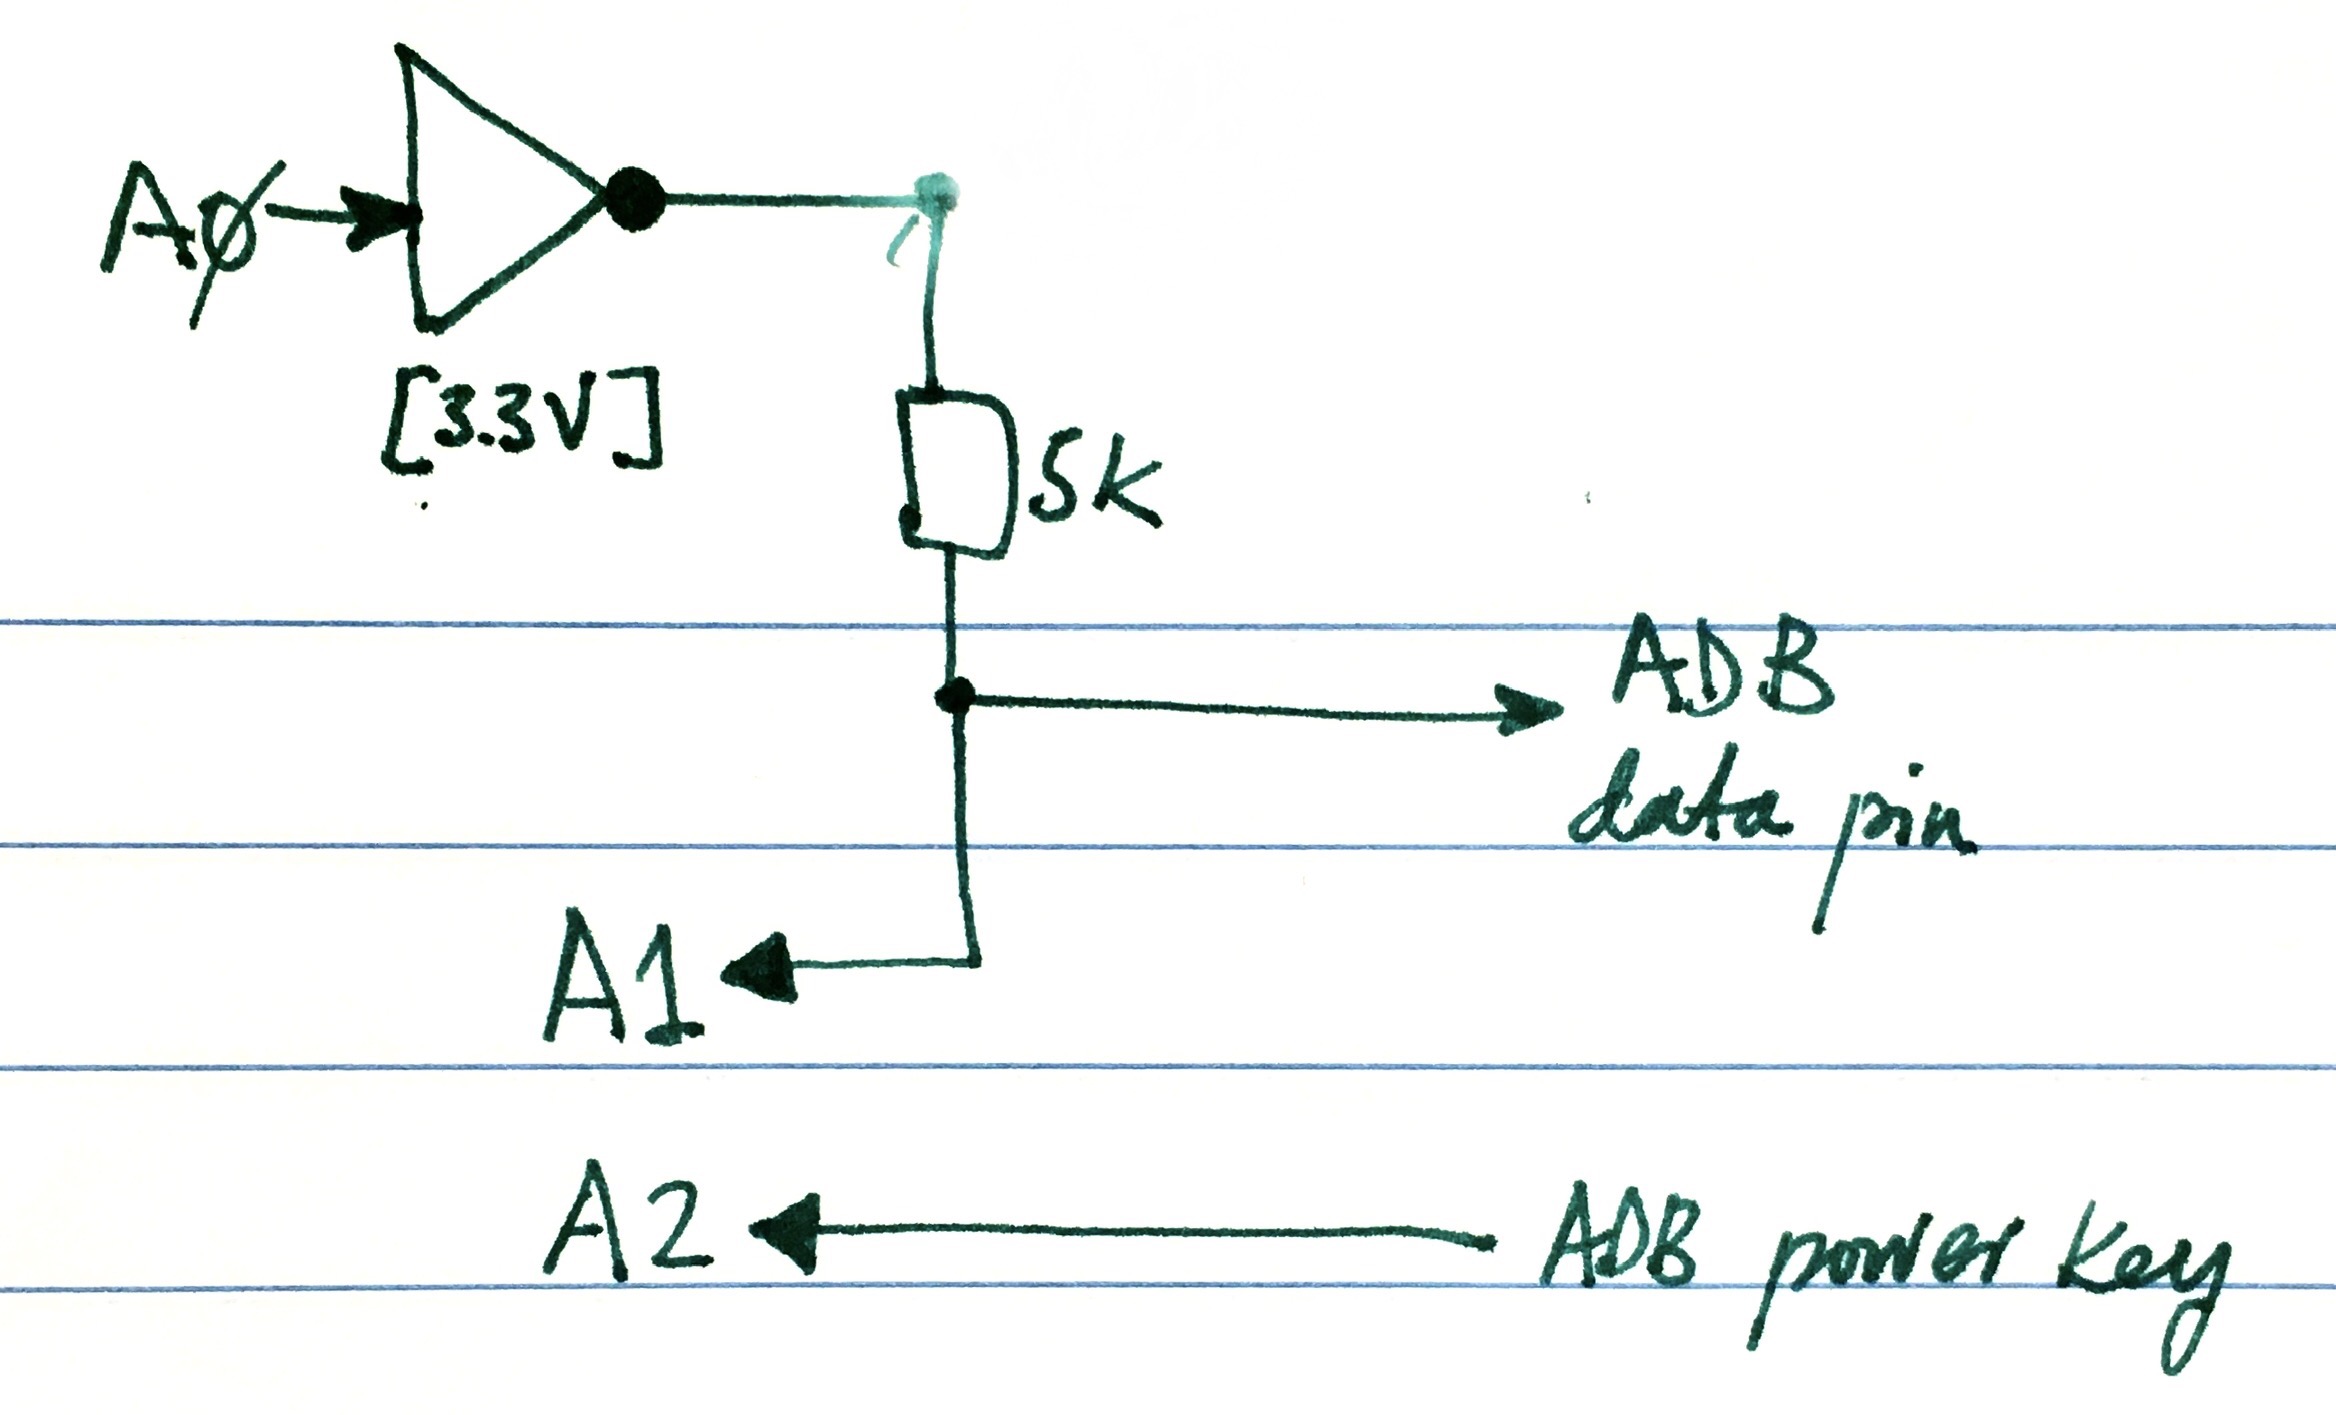 AØ
[3.3V]
5K
ADB
data pin
A1
A2
ADB power key